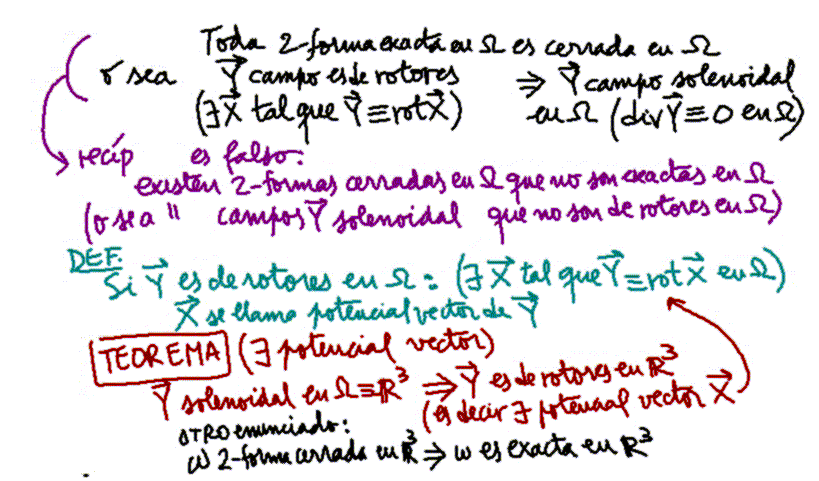 Toda 2-forma exacta en Ω es cerrada en Ω
o sea Y⃗ campo es de rotores ⇒ Y⃗ campo solenoidal
(∃X⃗ tal que Y⃗≡rotX⃗) en Ω (divY⃗≡0 en Ω)
recíp es falso:
existen 2-formas cerradas en Ω que no son exactas en Ω
(o sea " campos Y⃗ solenoidal que no son de rotores en Ω)
DEF:
Si Y⃗ es de rotores en Ω: (∃X⃗ tal que Y⃗≡rotX⃗ en Ω)
X⃗ se llama potencial vector de Y⃗
TEOREMA (∃ potencial vector)
Y⃗ solenoidal en Ω≡ℝ³ ⇒ Y⃗ es de rotores en ℝ³
(es decir ∃ potencial vector X⃗
OTRO enunciado:
ω 2-forma cerrada en ℝ³ ⇒ ω es exacta en ℝ³